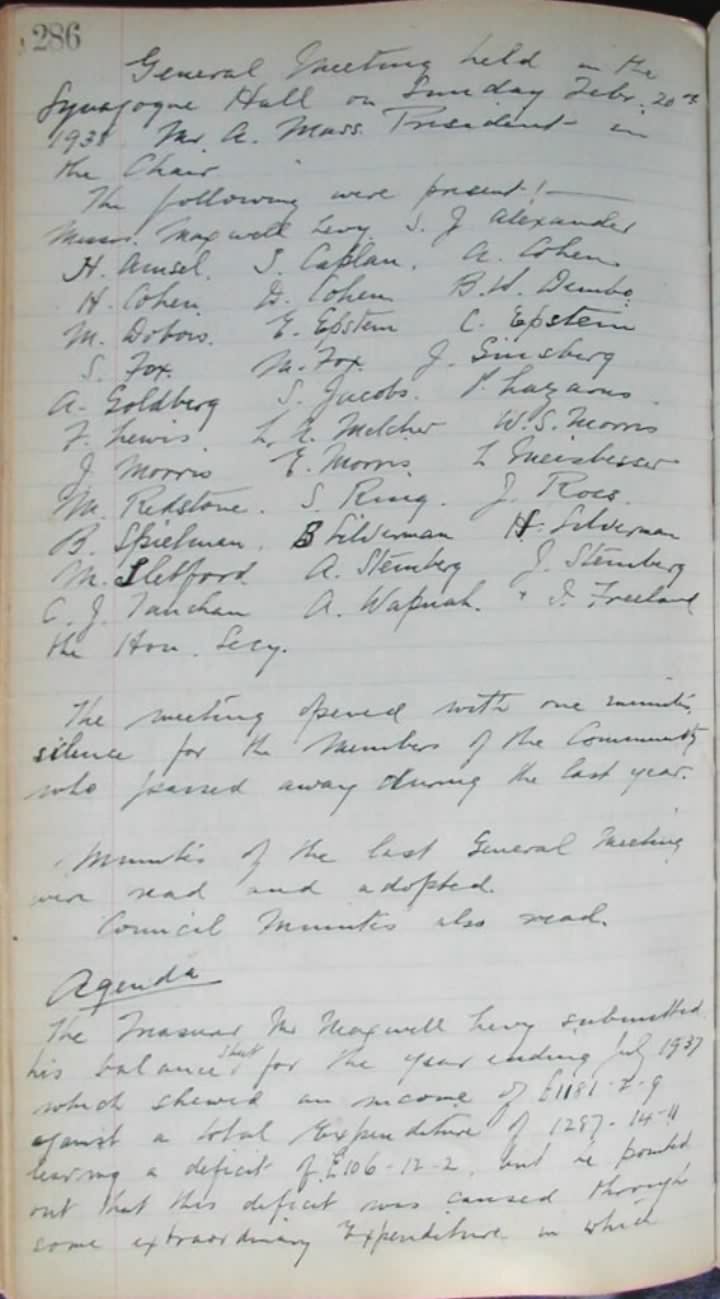 286
General Meeting held in the
Synagogue Hall on Sunday Febr. 20th
1938 Mr. A. Moss. President in
the Chair
The following were present:—
Messrs. Maxwell Levy S. J. Alexander
H. Amsel. S. Caplan. A. Cohen.
H. Cohen. D. Cohen B.W. Dembo.
M. Dobow. E. Epstein C. Epstein
S. Fox. M. Fox. J. Ginsberg
A. Goldberg S. Jacobs. Lazarus.
F. Lewis. L. Melcher W.S. Morris
J. Morris E. Morris. L
M. Redstone. S. Ring. J. Ross.
B. Spielman. B Silverman H. Silverman
M. A. Steinberg J. Steinberg
C. J. A. Wapnah. I. Freeland
the Hon. Secy.
The meeting opened with one minutes
silence for the Members of the Community
who passed away during the last year.
Minutes of the last General Meeting
were read and adopted.
Council Minutes also read.
Agenda
The Treasurer Mr Maxwell Levy submitted
his balance sheet for the year ending July 1937
which shewed an income of £1181-2-9
against a total Expenditure of 1287-14-11
leaving a deficit of £106-12-2, but he pointed
out that this deficit was caused through
some extraordinary Expenditure in which